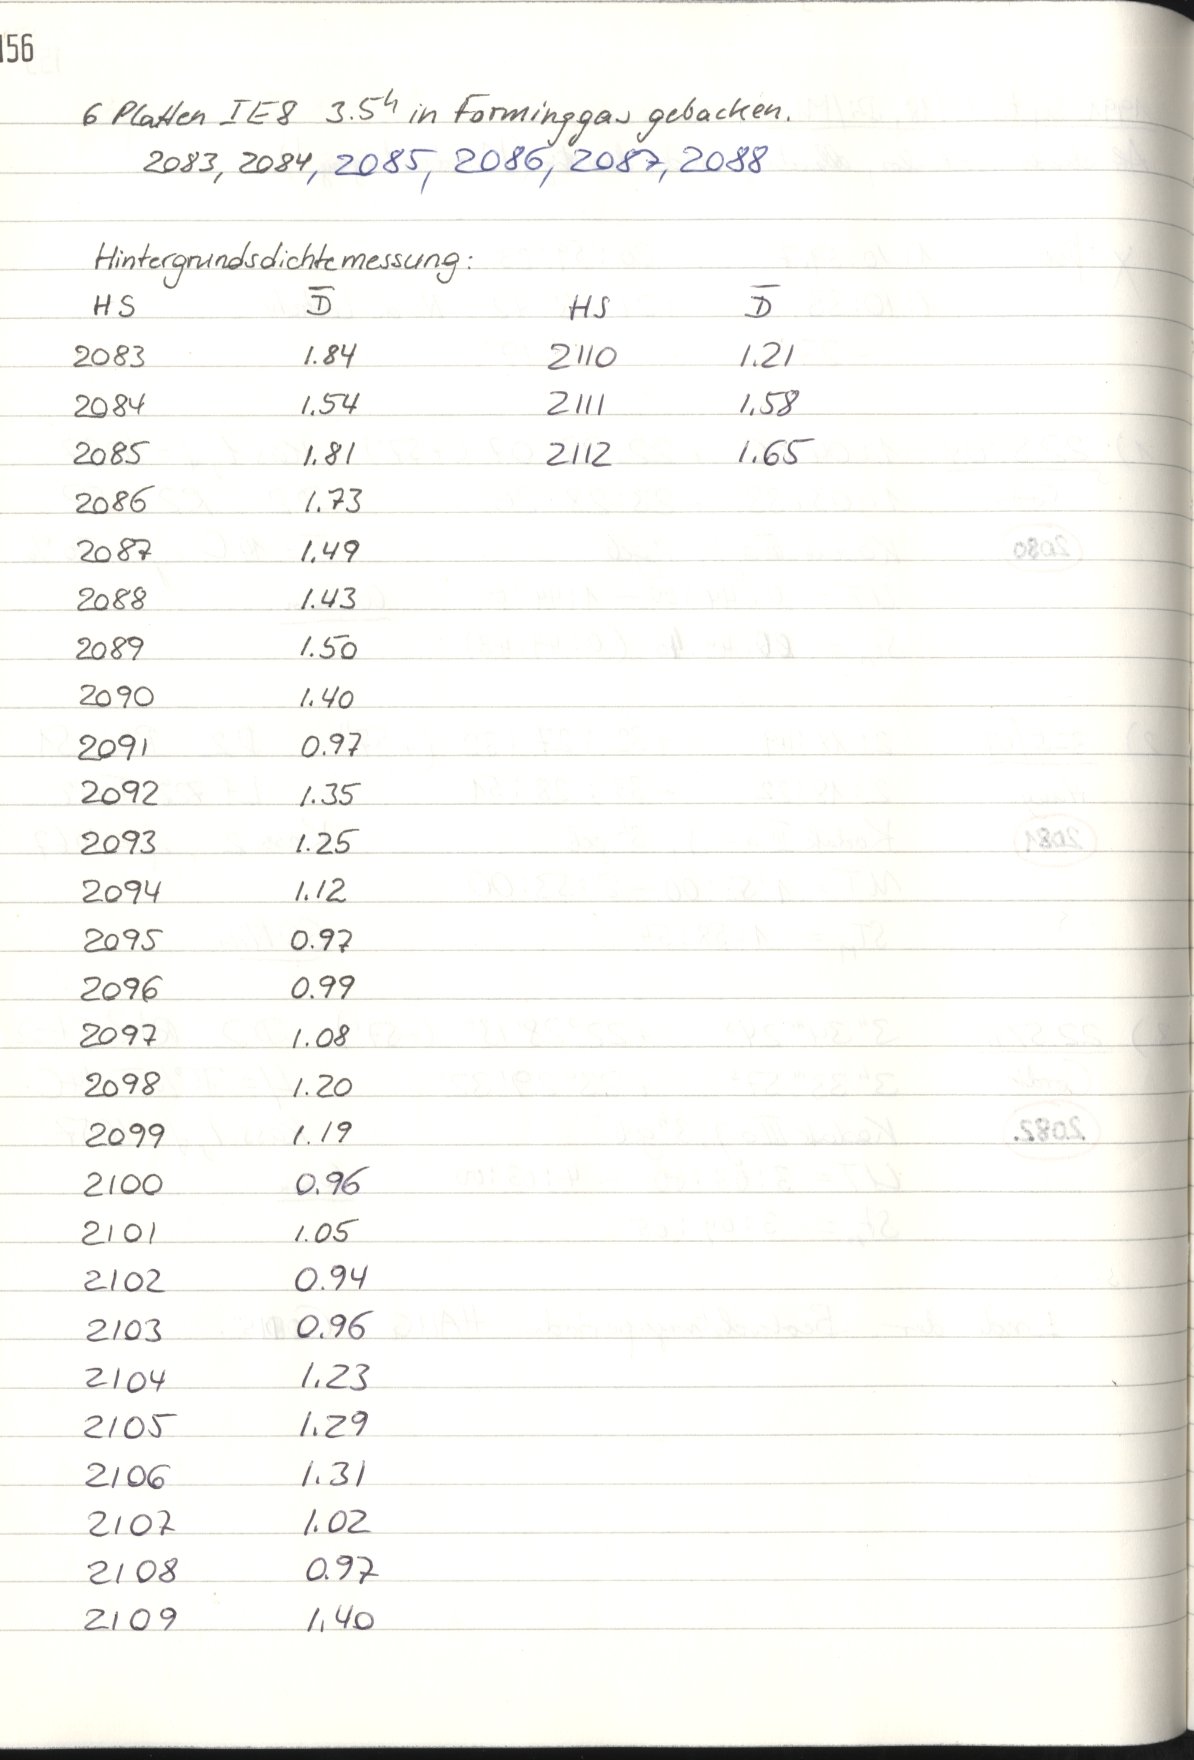 156
6 Platten IE8 3.5h in Forminggas gebacken.
2083, 2084, 2085, 2086, 2087, 2088
Hintergrundsdichtemessung:
HS D̅ HS D̅
2083 1.84 2110 1.21
2084 1.54 2111 1.58
2085 1.81 2112 1.65
2086 1.73
2087 1.49
2088 1.43
2089 1.50
2090 1.40
2091 0.97
2092 1.35
2093 1.25
2094 1.12
2095 0.97
2096 0.99
2097 1.08
2098 1.20
2099 1.19
2100 0.96
2101 1.05
2102 0.94
2103 0.96
2104 1.23
2105 1.29
2106 1.31
2107 1.02
2108 0.97
2109 1.40